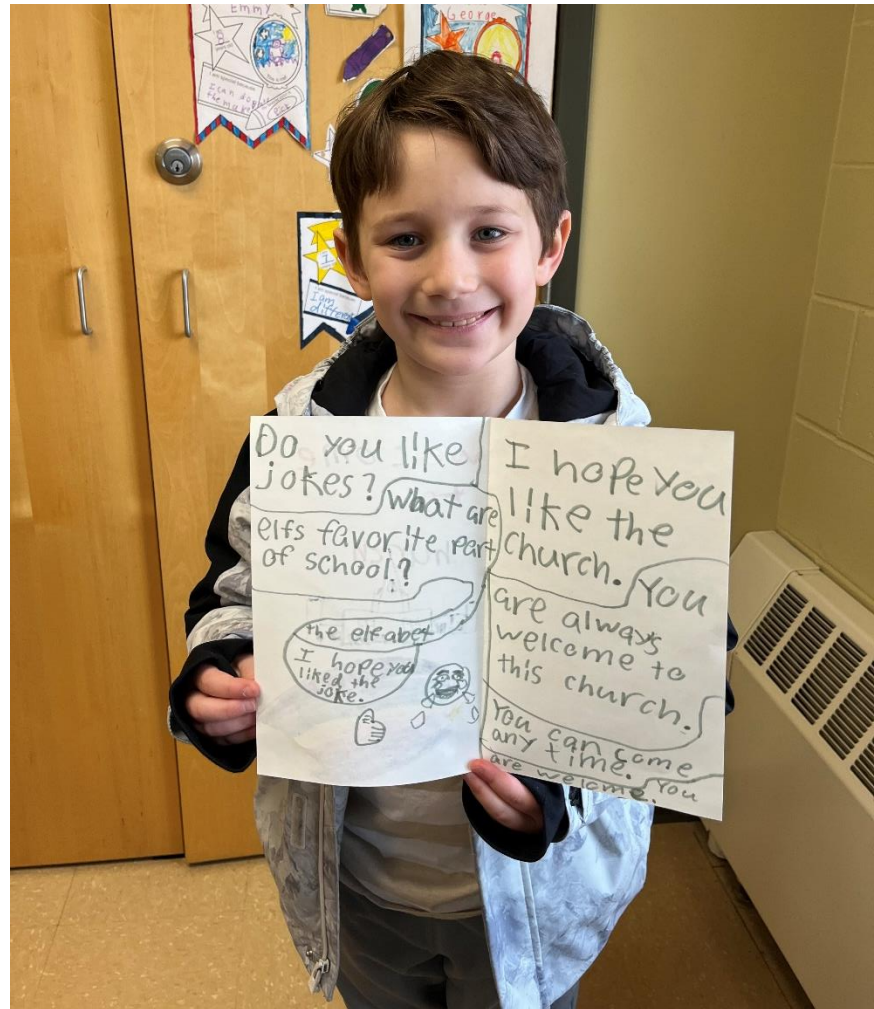 Emmy
I can do
the make
George
I am
differe
Do you like
jokes? What are
elfs favorite part
of school?
the elfabet
I hope you
liked the
joke.
I hope you
like the
church. You
are always
welcome to
this church.
You can come
any time. You
are welcome.